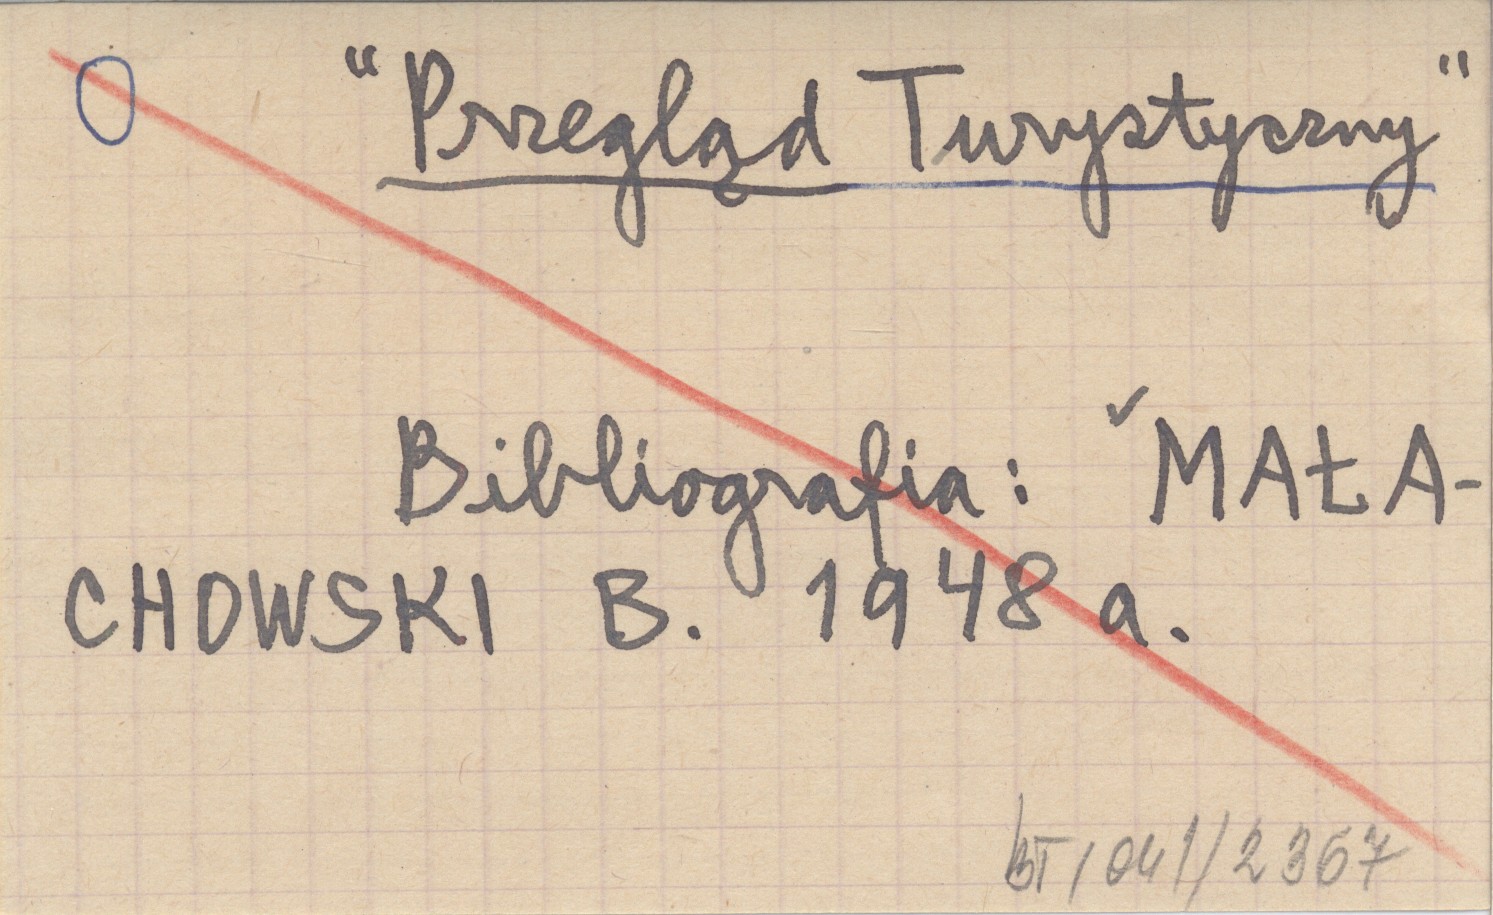 “Przegląd Turystyczny”
Bibliografia: ✓MAŁA-
CHOWSKI B. 1948 a.
BT/041/2367